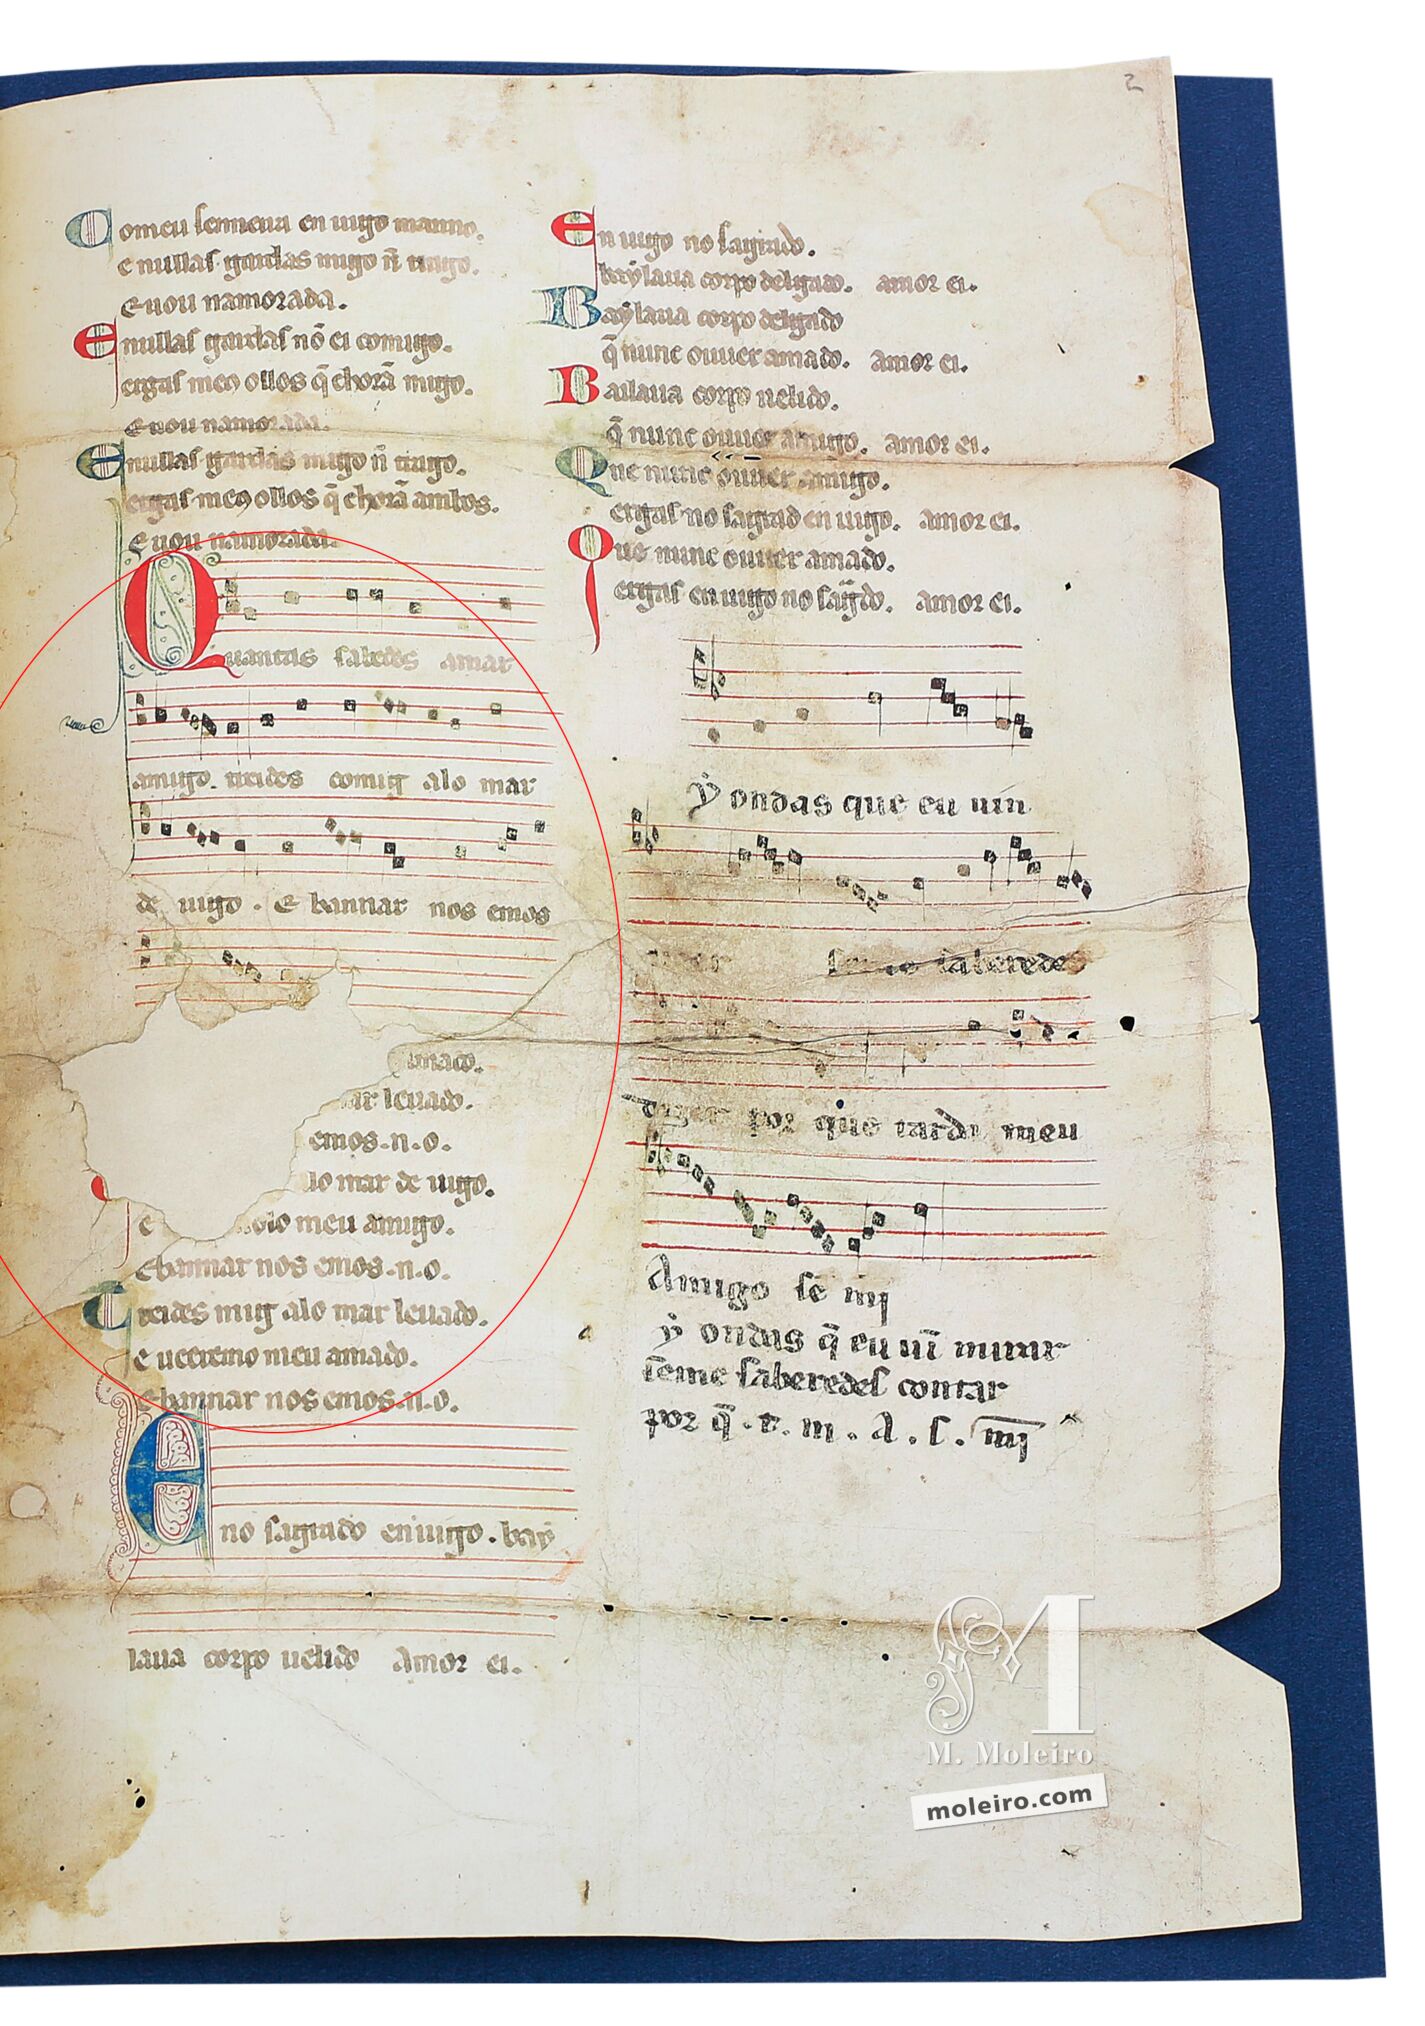 2
Comeu senneira en uigo manno.
e nullas gardas migo nõ trago.
E uou namorada.
E nullas gardas nõ ei comigo.
ergas meꝯ ollos q̃ chorã migo.
E uou namorada.
E nullas gardas migo nõ trago.
ergas meꝯ ollos q̃ chorã ambos.
E uou namorada.
Quantas sabedes amar
amigo. treides comig alo mar
de uigo. E bannar nos emos
amado.
ar leuado.
emos .n.o.
lo mar de uigo.
e molo meu amigo.
E bannar nos emos .n.o.
Treides mig alo mar leuado.
e ueeremo meu amado.
E bannar nos emos .n.o.
E no sagrado en uigo. bay
laua corpo uelido Amor ei.
En uigo no sagrado.
baylaua corpo delgado. amor ei.
Baylaua corpo delgado
q̃ nunc ouuer amado. amor ei.
Bailaua corpo uelido.
q̃ nunc ouuer amigo. amor ei.
Que nunc ouuer amigo.
ergas no sagrad en uigo. amor ei.
Que nunc ouuer amado.
ergas en uigo no sagrado. amor ei.
Ay ondas que eu uin
ueer se me saberedes
dizer por que tarda meu
Amigo se mi
ay ondas q̃ eu uĩ mirar
se me saberedes contar
por q̃ . t. m . A . s . mi
M
M. Moleiro
moleiro.com